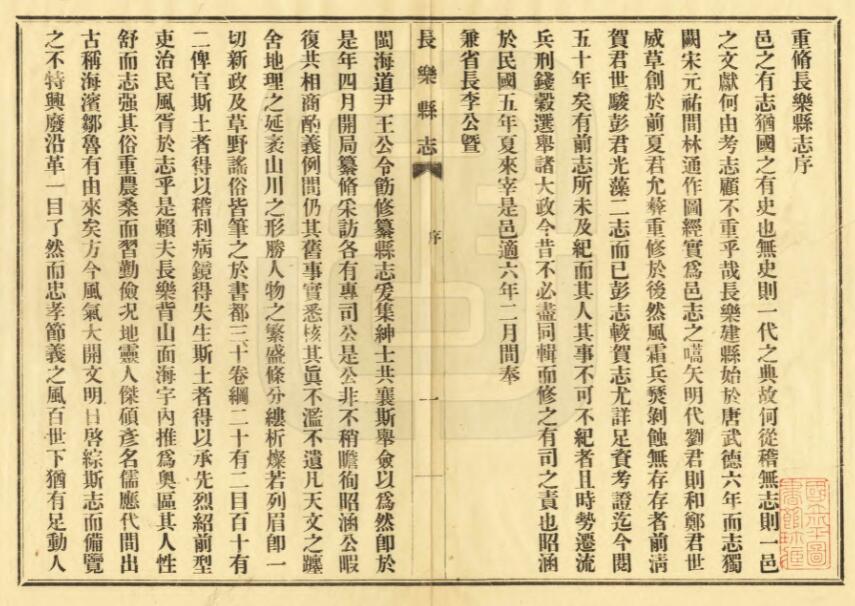 重脩長樂縣志序
邑之有志猶國之有史也無史則一代之典故何從稽無志則一邑
之文獻何由考志顧不重乎哉長樂建縣始於唐武德六年而志獨
闕宋元祐間林通作圖經實爲邑志之嚆矢明代劉君則和鄭君世
威草創於前夏君允彝重修於後然風霜兵燹剝蝕無存存者前淸
賀君世駿彭君光藻二志而已彭志較賀志尤詳足資考證迄今閱
五十年矣有前志所未及紀而其人其事不可不紀者且時勢遷流
兵刑錢穀選舉諸大政今昔不必盡同輯而修之有司之責也昭涵
於民國五年夏來宰是邑適六年二月間奉
兼省長李公曁
長樂縣志
序
一
閩海道尹王公令飭修纂縣志爰集紳士共襄斯舉僉以爲然卽於
是年四月開局纂脩采訪各有專司公是公非不稍瞻徇昭涵公暇
復共相商酌義例間仍其舊事實悉核其眞不濫不遺凡天文之躔
舍地理之延袤山川之形勝人物之繁盛條分縷析燦若列眉卽一
切新政及草野謠俗皆筆之於書都三十卷綱二十有二目百十有
二俾官斯土者得以稽利病鏡得失生斯土者得以承先烈紹前型
吏治民風胥於志乎是賴夫長樂背山面海宇內推爲奥區其人性
舒而志强其俗重農桑而習勤儉况地靈人傑碩彥名儒應代間出
古稱海濱鄒魯有由來矣方今風氣大開文明日啓綜斯志而備覽
之不特興廢沿革一目了然而忠孝節義之風百世下猶有足動人